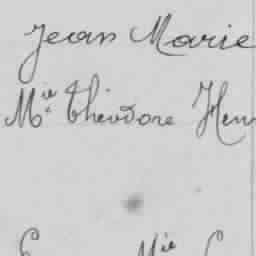 Jean Marie
Mie Théodore Hen